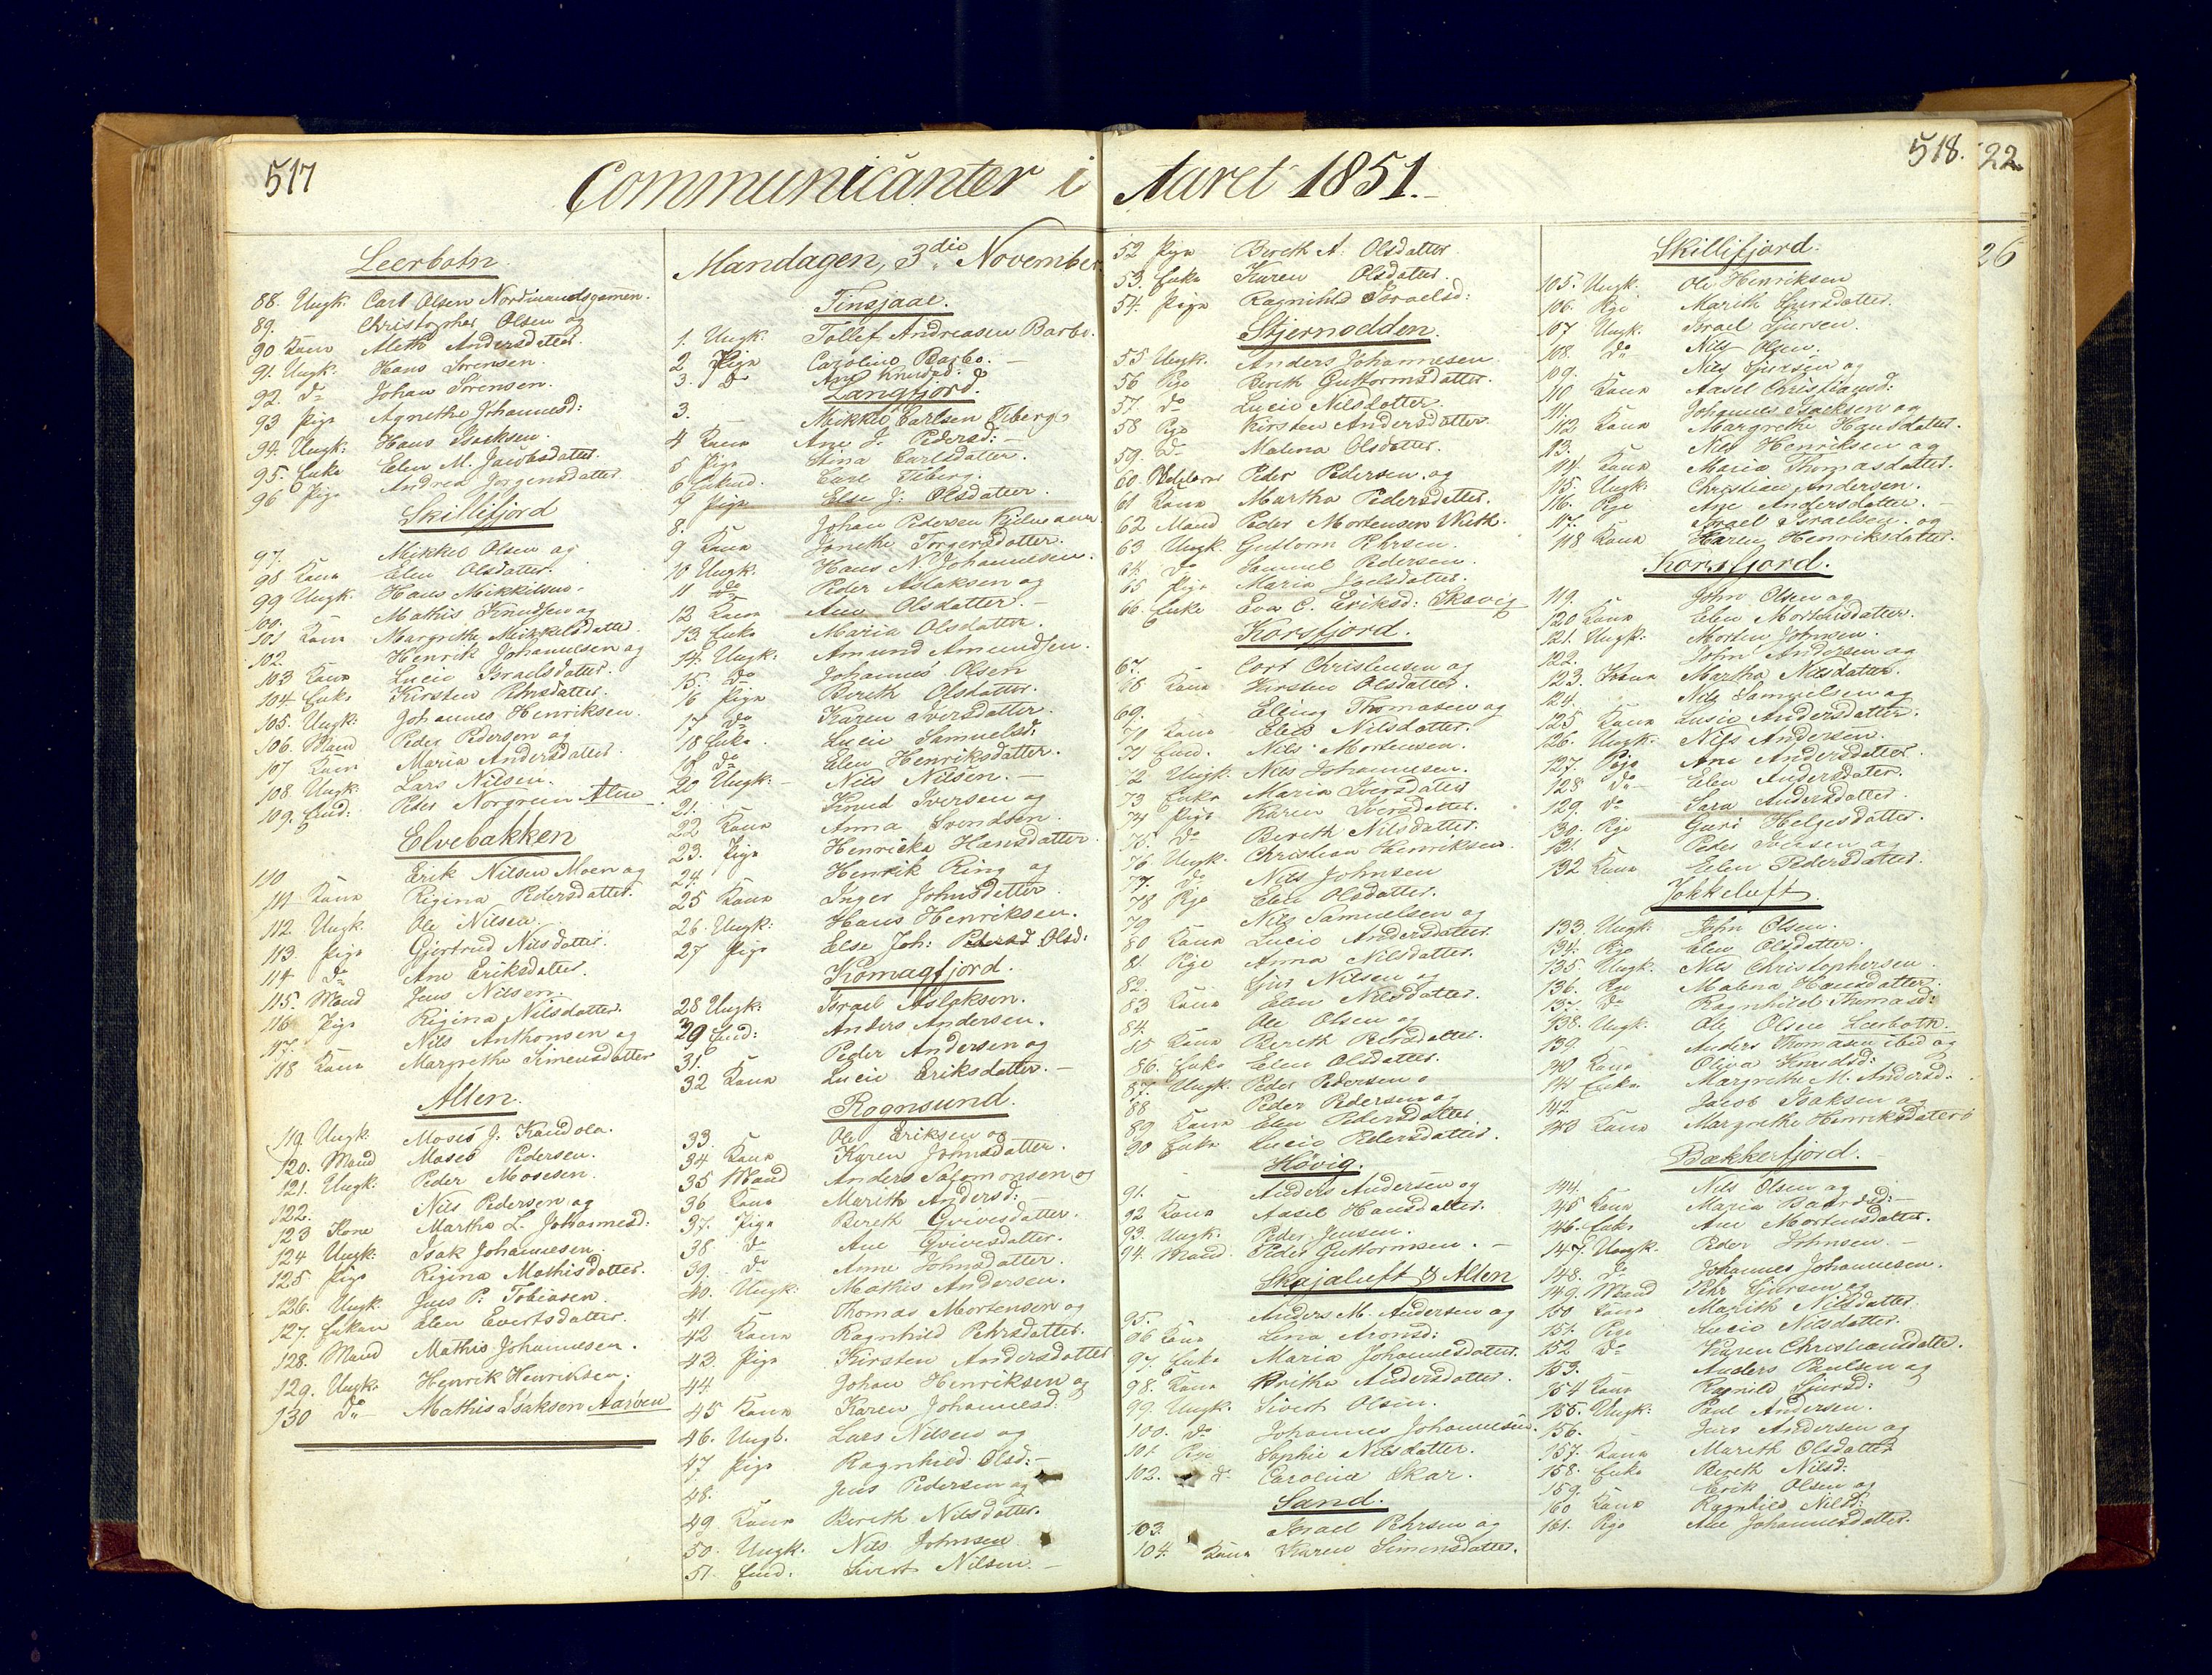 517
Communicanter i Aaret 1851.
518.
22.
26
Leerbotn
88. Ungk: Carl Olsen Nordmandsgamen.
89. Christopher Olsen og
90 Kone Aleth Andersdatter.
91. Ungk: Hans Sørensen.
92. Do Johan Sørensen.
93 Pige Agnethe Johannesd:
94. Ungk: Hans Isaksen.
95. Enke Elen M. Jacobsdatter.
96 Pige Andrea Jørgensdatter
Skillifjord
97. Mikkel Olsen og
98 Kone Elen Olsdatter.
99 Ungk. Hans Mikkelsen.
100. Mathis Knudsen og
101 Kone Margrethe Mikkelsdatter
102. Henrik Johannesen og
103 Kone Lucie Israelsdatter.
104 Enke Kirsten Pehrsdatter.
105. Ungk: Johannes Henriksen.
106. Mand Peder Pedersen og
107 Kone Maria Andersdatter
108 Ungk: Lars Nilsen.
109. Eind: Peder Norgreen Alten
Elvebakken
110 Erik Nilsen Moen og
111 Kone Rigina Pedersdatter.
112. Ungk. Ole Nilsen.
113. Pige Gjertrud Nilsdatter.
114 Do Ane Eriksdatter.
115. Mand Jens Nilsen.
116 Pige Rigina Nilsdatter.
117. Nils Anthonsen og
118 Kone Margrethe Simensdatter
Alten.
119. Ungk. Moses J. Kandola.
120. Mand Moses Pedersen.
121. Ungk: Peder Mosesen.
122. Nils Pedersen og
123 Kone Martha L. Johannesd:
124 Ungk: Isak Johannesen.
125 Pige Rigina Mathisdatter.
126. Ungk. Jens P. Tobiasen.
127. Enken Elen Evertsdatter.
128. Mand Mathis Johannesen.
129. Ungk. Henrik Henriksen.
130 Do Mathis Isaksen Aarøen
Mandagen, 3die November.
Finsjaae.
1. Ungk. Tollef Andreasen Barbo.
2 Pige Caroline Barbo.
3. Do Ane Knudsd:
Langfjord.
3. Mikkel Carlsen Fiberg
4 Kone Ane J. Pedersd:
5 Pige Stina Carlsdatter.
6 Enkmd. Carl Fiberg.
7 Pige Else J: Olsdatter.
8. Johan Pedersen Kjelmann
9 Kone Jonethe Torgersdatter.
10 Ungk. Hans N. Johannesen.
11 Do Peder Aslaksen og
12 Kone Ane Olsdatter.
13. Enke Maria Olsdatter.
14. Ungk: Amund Amundsen.
15. Do Johannes Olsen
16 Pige Bereth Olsdatter.
17 Do Karen Iversdatter.
18 Enke. Lucie Samuelsd:
19 Do Elen Henriksdatter.
20 Ungk: Nils Nilsen.
21. Knud Iversen og
22 Kone Anna Svendsen.
23. Pige Henrikke Hansdatter
24. Henrik Ring og
25 Kone Inger Johnsdatter
26. Ungk: Hans Henriksen.
27 Pige Else Joh: Pedersd Olsd:
Komagfjord.
28 Ungk: Israel Aslaksen.
29 Eind: Anders Andersen.
31. Peder Andersen og
32 Kone Lucie Eriksdatter.
Rognsund.
33. Ole Eriksen og
34 Kone Karen Johnsdatter.
35 Mand Anders Salomonsen og
36 Kone Marith Andersd:
37. Pige Bereth Gvivesdatter.
38 Do Ane Gvivesdatter.
39. Do Anne Johnsdatter.
40. Ungk: Mathis Andersen.
41. Thomas Mortensen og
42 Kone Ragnhild Pehrsdatter.
43. Pige Kirsten Andersdatter
44. Johan Henriksen og
45 Kone Karen Johannesd:
46. Ungk. Lars Nilsen og
47 Pige Ragnhild Olsd:
48. Jens Pedersen og
49. Kone Bereth Nilsdatter.
50. Ungk. Nils Johnsen
51. Eind. Sivert Nilsen.
52 Pige Bereth A. Olsdatter
53. Enke Karen Olsdatter.
54. Pige Ragnhild Israelsd:
Stjernodden.
55 Ungk. Anders Johannesen
56 Pige Bereth Guttormsdatter.
57. Do Lucie Nilsdatter.
58 Pige Kirsten Andersdatter
59. Do Malena Olsdatter.
60. Peder Pedersen og
61 Kone Martha Pedersdatter.
62 Mand Peder Mortensen With.
63 Ungk. Guttorm Pehrsen.
64. Do Samuel Pedersen.
65 Pige Maria Joelsdatter.
66. Enke Eva C. Eriksd: Skavig
Korsfjord.
67. Cort Christensen og
68 Kone Kirsten Olsdatter.
69. Eling Thomasen og
70 Kone Elen Nilsdatter.
71 Eind. Nils Mortensen.
72 Ungk. Nils Johannesen.
73 Enke Maria Iversdatter
74 Pige Karen Iversdatter.
75. Do Bereth Nilsdatter.
76. Ungk. Christian Henriksen.
77. Do Nils Johnsen
78 Pige Elen Olsdatter.
79 Nils Samuelsen og
80 Kone Lucie Andersdatter.
81. Pige Anna Nilsdatter.
82. Gjus Nilsen og
83 Kone Elen Nilsdatter.
84. Ole Olsen og
85 Kone Bereth Pehrsdatter.
86. Enke Elen Olsdatter.
87. Ungk. Peder Pedersen
88 Peder Pedersen og
89 Kone Elen Pedersdatter
90 Enke Lucie Pedersdatter.
Høvig.
91. Anders Andersen og
92 Kone Aasel Hansdatter.
93. Ungk. Peder Jensen.
94. Mand Peder Guttormsen.
Skajaluft & Alten
95. Anders M. Andersen og
96 Kone Lena Aronsd:
97. Enke Maria Johannesdatter.
98. Kone Britha Andersdatter.
99. Ungk. Sivert Olsen.
100. Do Johannes Johannesen.
101. Pige Sophie Nilsdatter.
102. d. Caroline Skar.
Sand.
103. Israel Pehrsen og
104. Kone Karen Simensdatter.
Skillifjord.
105. Ungk. Ole Henriksen
106. Pige Marith Gjørsdatter.
107 Ungk. Israel Gjørsen.
108. Do Nils Olsen.
109. Nils Gjørsen og
110 Kone Aasel Christiansd:
111. Johannes Isaksen og
112 Kone Margrethe Hansdatter.
13. Nils Henriksen og
114. Kone Maria Thomasdatter.
115. Ungk. Christian Andersen.
116. Pige Ane Andersdatter.
117. Israel Israelsen og
118 Kone Karen Henriksdatter.
Korsfjord.
119. John Olsen og
120 Kone Elen Mortensdatter.
121. Ungk. Morten Johnsen.
122. John Andersen og
123. Kone Martha Nilsdatter.
124. Nils Samuelsen og
125 Kone Lusie Andersdatter.
126. Ungk. Nils Andersen.
127. Pige Ane Andersdatter.
128 Do Elen Andersdatter.
129. Do Sara Andersdatter.
130. Pige Guri Helgesdatter.
131. Peder Iversen og
132 Kone Elen Pedersdatter.
Jokkeluft.
133. Ungk: John Olsen.
134. Pige Elen Olsdatter.
135. Ungk. Nils Christophersen.
136. Pige Malena Hansdatter.
137. Do Ragnhild Thomasd:
138. Ungk. Ole Olsen Leerbotn.
139. Anders Thomasen ibid og
140 Kone Oliva Knudsd:
141 Enke. Margrethe M. Andersd.
142. Jacob Isaksen og
143 Kone Margrethe Henriksdatter
Bækkerfjord.
144. Nils Olsen og
145 Kone Maria Baardsd:
146. Enke Ane Mortensdatter.
147. Ungk. Peder Johnsen.
148. Do Johannes Johannesen.
149. Mand Pehr Gjørsen og
150. Kone Marith Nilsdatter.
151. Pige Lucie Nilsdatter.
152. Do Karen Christiansdatter.
153. Anders Paulsen og
154 Kone Ragnild Gjørsd:
155. Ungk: Paul Andersen.
156. Jens Andersen og
157. Kone Marith Olsdatter
158. Enke Bereth Nilsd:
159. Erik Olsen og
160 Kone Ragnhild Nilsd:
161. Pige Ane Johannesdatter.